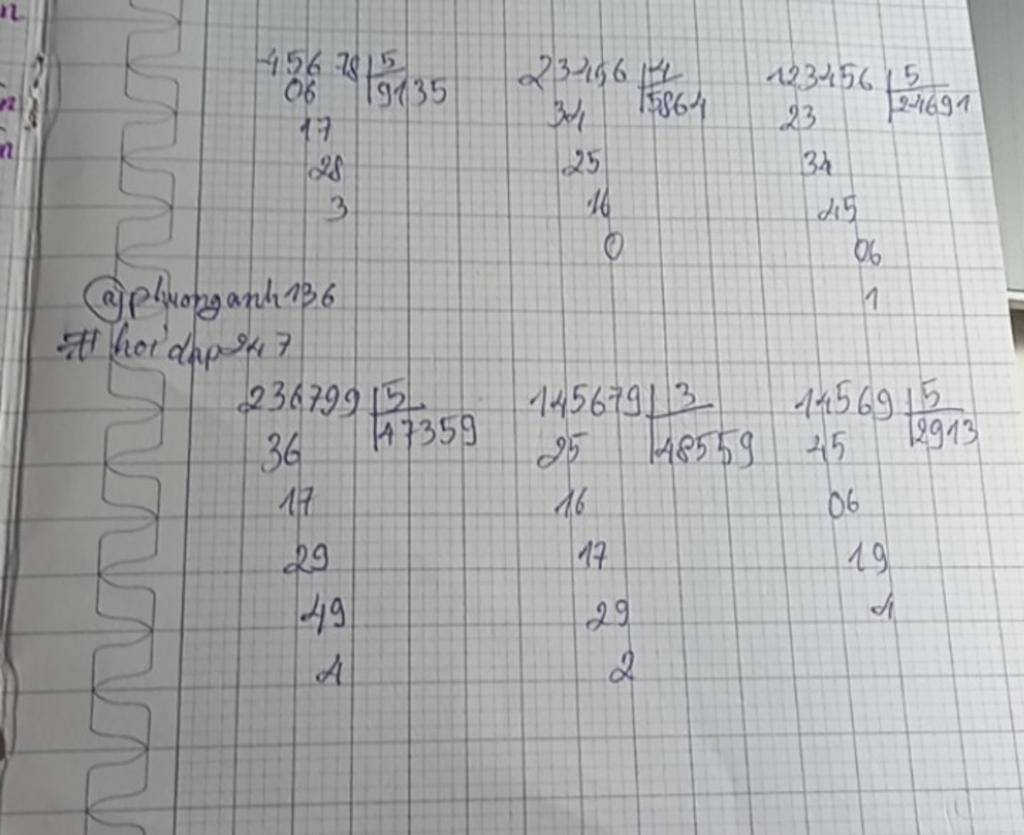 n
n
n
45678 5 23456 4 123456 5
06 9135 34 5864 23 24691
17 25 34
28 16 45
3 0 06
1
@phuonganh136
#hoidap247
236799 5 145679 3 14569 5
36 47359 25 48559 45 2913
17 16 06
29 17 19
49 29 4
4 2